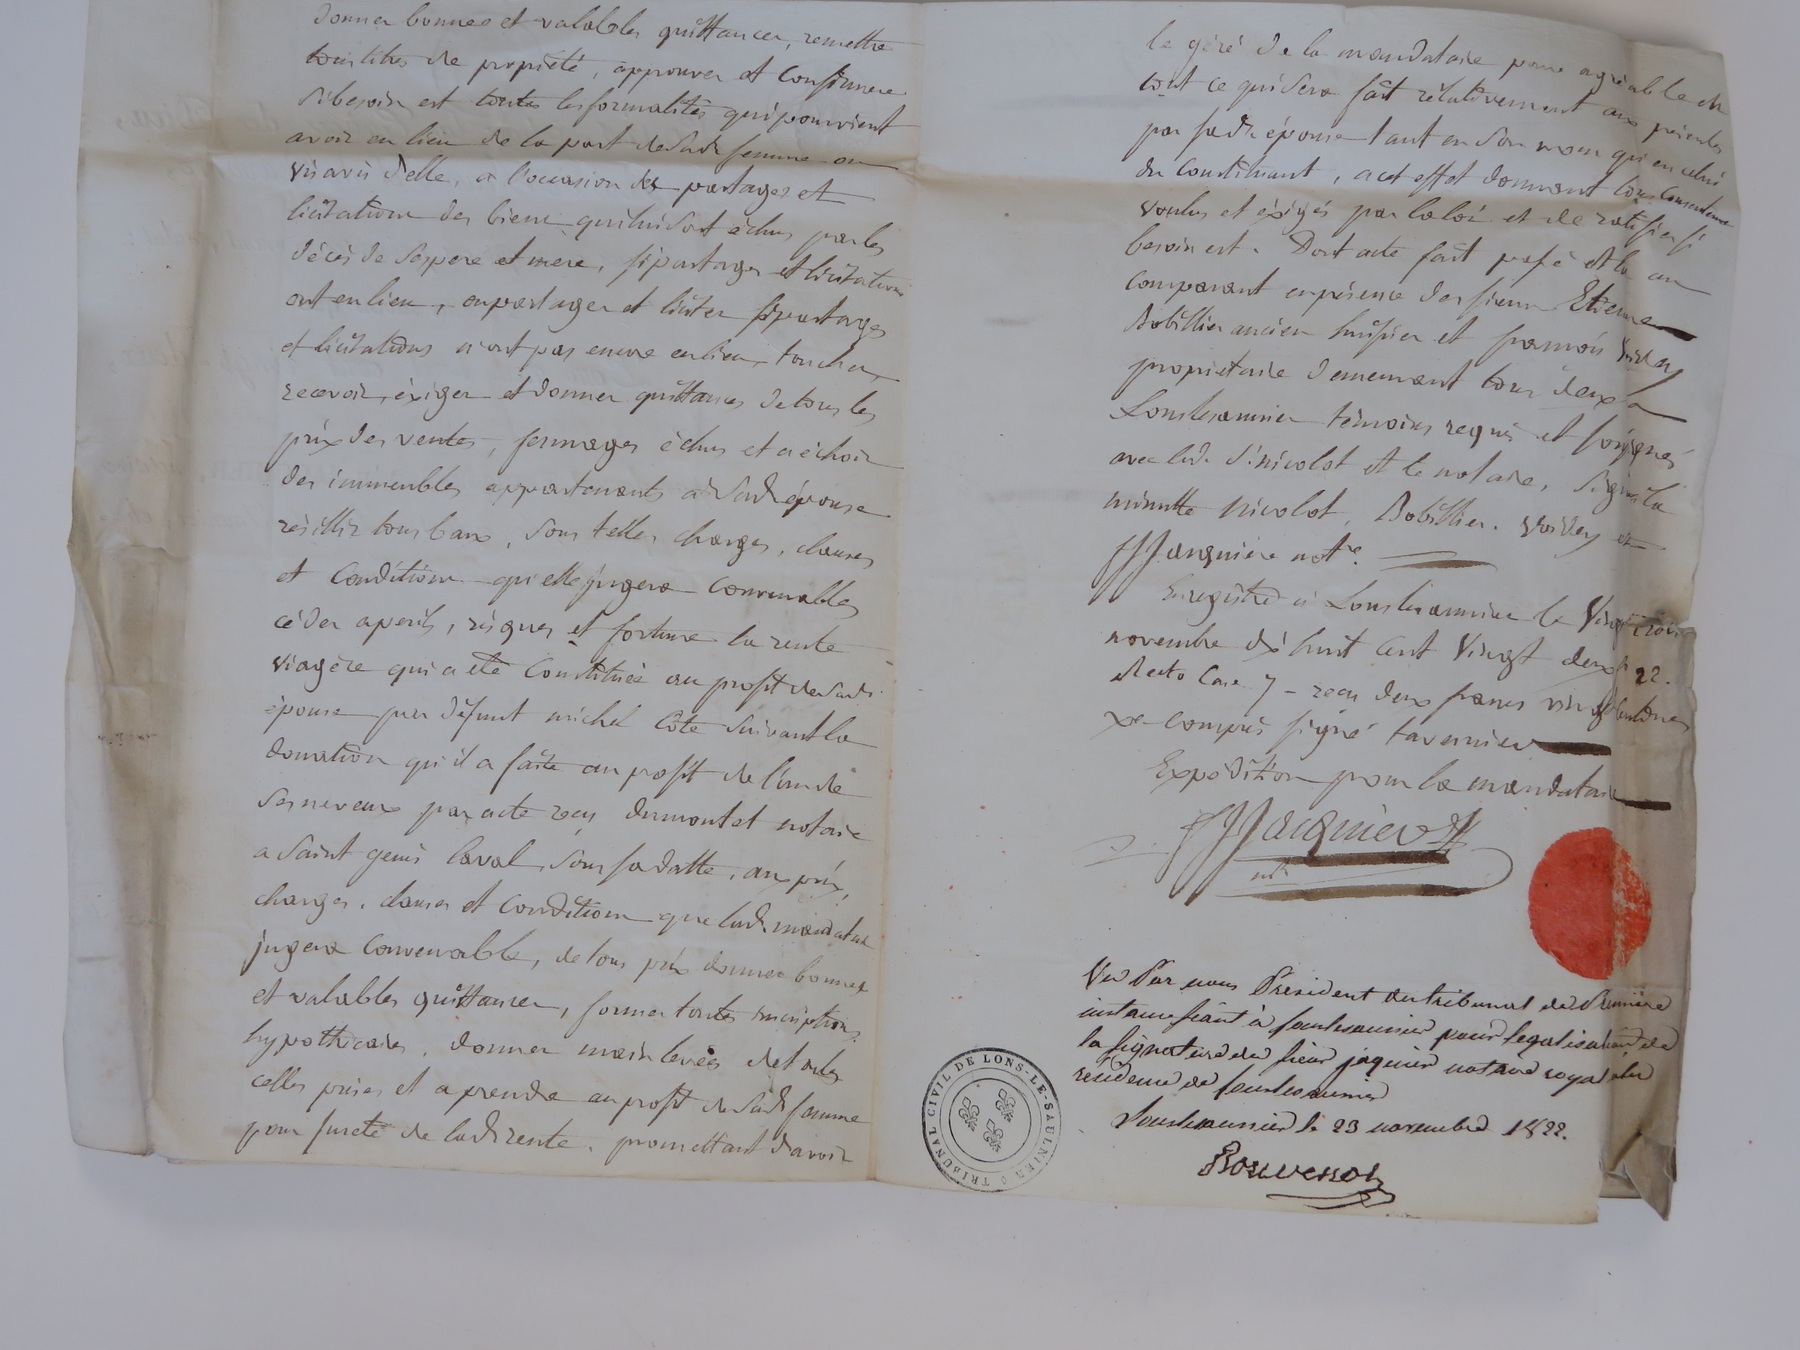 donner bonnes et valables quittances, remettre
tous titres de propriété, approuver et confirmer
si besoin est toutes les formalités qui pourroient
avoir eu lieu de la part de sad. femme ou
vis avis d'elle, a l'occasion des partages et
licitations des biens qui lui sont échus par les
décès de ses pere et mere, si partages et licitations
ont eu lieu, ou partager et liciter si partages
et licitations n'ont pas encore eu lieu, toucher,
recevoir, éxiger et donner quittances de tous les
prix des ventes, fermages échus et a échoir
des immeubles appartenants à sad. épouse
résillir tous baux, sous telles charges, clauses
et conditions qu'elle jugera convenables
céder a perils, risques et fortune la rente
viagère qui a été constituée au profit de sad.
épouse par défunt michel Côte suivant la
donation qu'il a faite au profit de l'un de
ses neveux par acte reçu dumontet notaire
a Saint genis laval, sous sa datte, aux prix,
charges, clauses et conditions que lad. mandataire
jugera convenable, de tous prix donner bonnes
et valables quittances, former toutes inscriptions
hypothecaires, donner main levées de toutes
celles prises et a prendre au profit de sad. femme
pour sureté de lad. rente. promettant d'avoir
le géré de la mandataire pour agréable et
tout ce qui sera fait rélativement aux
par sad. épouse tant en son nom qu'en celui
du constituant, a cet effet donnant tous consentemens
voulus et éxigés par la loi et de ratifier si
besoin est. Dont acte fait passé et lu au
comparant en présence des sieurs Etienne
Bobillier ancien huissier et françois
propriétaire demeurant tous deux a
Lonslesaunier témoins requis et soussignés
avec led. S. nicolot et le notaire, signé à la
minutte nicolot, Bobillier. et
Jacquier not.e
Enregistré à Lonslesaunier le Vingt trois
novembre dix huit cent Vingt deux f° 22.
Recto Case 7 - reçu deux francs vingt centimes
xe compris signé tavernier
Expédition pour la mandataire
Jacquier
nre
Vu Par nous President du tribunal de Premiere
instance séant à Lonslesaunier pour legalisation de
la signature du sieur jaquier notaire royal à la
residence de Lonslesaunier
Lonslesaunier le 23 novembre 1822.
TRIBUNAL CIVIL DE LONS-LE-SAUNIER